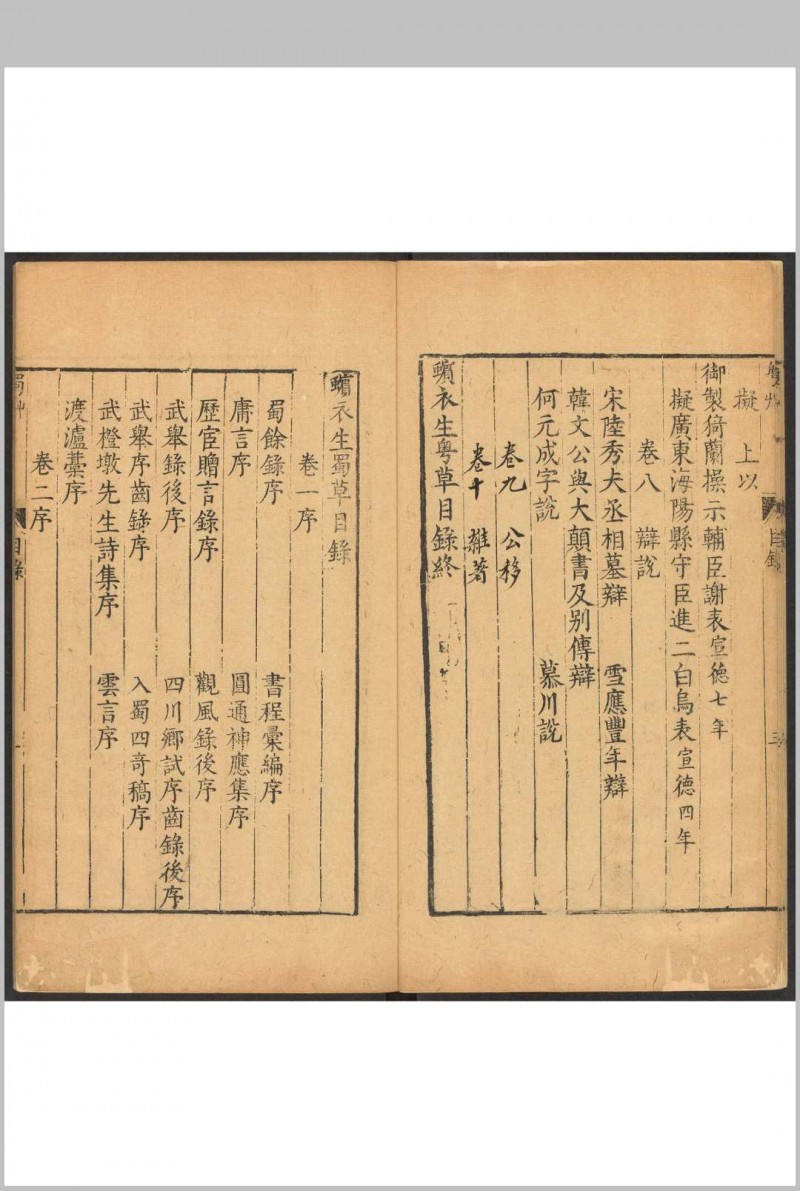 擬　上以
御製猗蘭操示輔臣謝表宣德七年
擬廣東海陽縣守臣進二白烏表宣德四年
卷八　辯說
宋陸秀夫丞相墓辯　雪應豐年辯
韓文公與大顛書及别傳辯
何元成字說　慕川說
卷九　公移
卷十　雜著
蠙衣生粤草目録終
目錄
三
蠙衣生蜀草目錄
卷一序
蜀餘錄序　書程彙編序
庸言序　圓通神應集序
歷宦贈言錄序　觀風錄後序
武舉錄後序　四川鄉試序齒錄後序
武舉序齒錄序　入蜀四奇稿序
武橙墩先生詩集序　雲言序
渡瀘藁序
卷二序
目錄